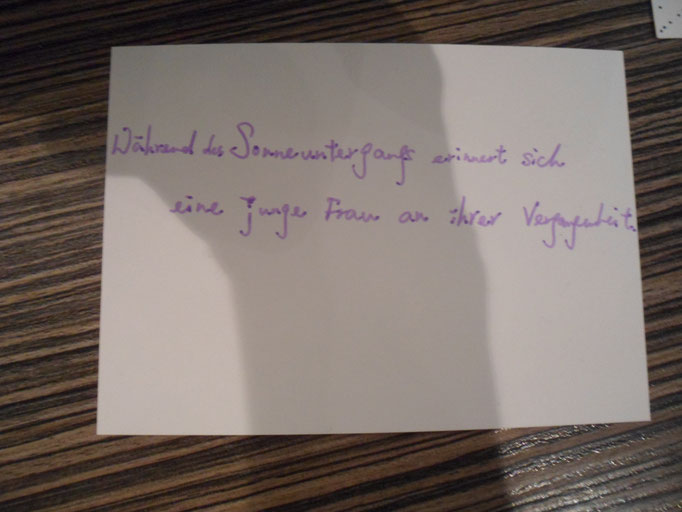 Während des Sonneuntergangs erinnert sich
eine junge Frau an ihrer Vergangenheit.